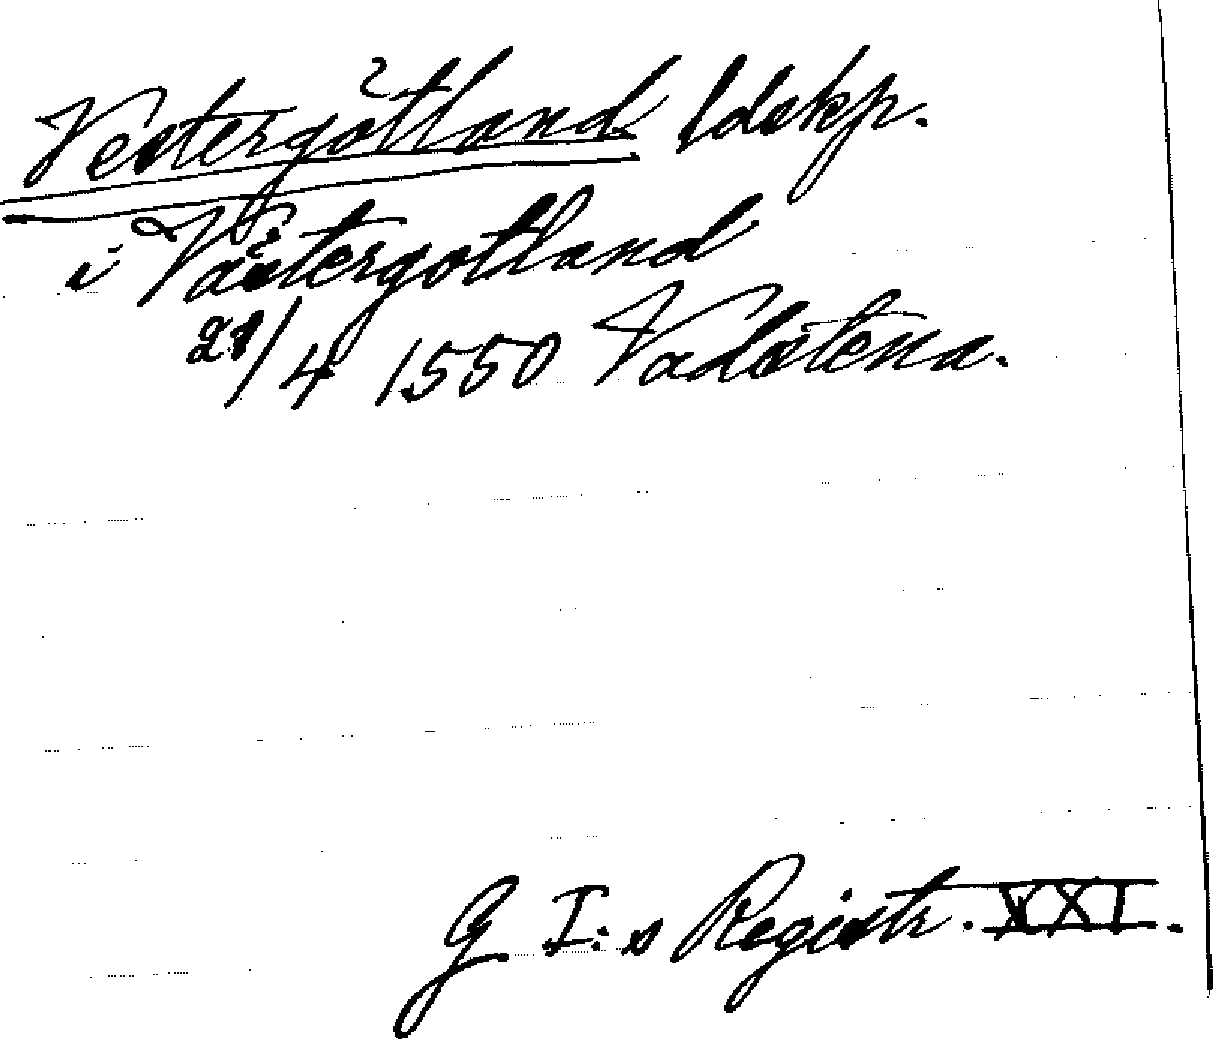 Vestergötland ldskp.
i Västergotland
21/4 1550 Vadstena.
G I:s Registr. XXI.